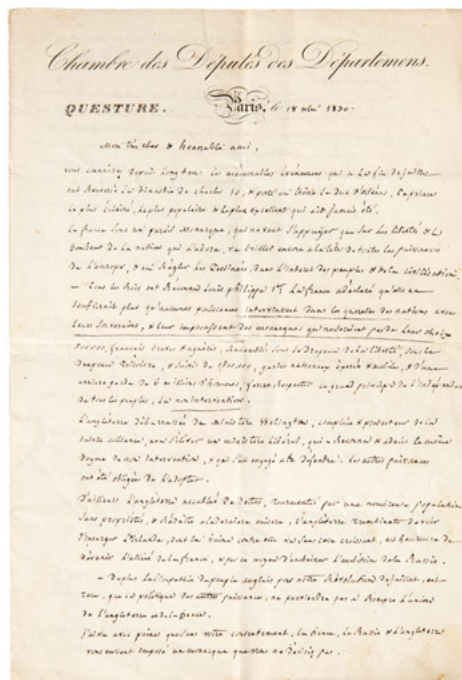 Chambre des Députés des Départemens.
QUESTURE. Paris, le 18 1830.
Mon très cher & honorable ami,
vous connaissez depuis longtems les mémorables évènemens qui a la fin de juillet
ont renversé la dinastie de charles 10, & porté au trône le Duc d'orléans, Le prince
le plus éclairé, le plus populaire & le plus excellent qui ait jamais été.
La france sous un pareil monarque, qui ne veut s'appuyer que sur les libertés & le
bonheur de la nation qui l'adore, va briller encore a la tete de toutes les puissances
de L'europe, & en régler les destinées, dans L'interet des peuples & de la civilisation
Tous les Rois ont Reconnu Louis philippe 1er. La france a déclaré qu'elle ne
souffrirait plus qu'aucune puissance intervienne dans les querelles des nations avec
Leurs souverains, & leur imposassent des monarques qui ne seraient pas de leur choix
français braves & aguéris, sous le Drapeau de la liberté, sous la
& suivis de gardes nationaux & d'une
arrière garde de 6 millions d'hommes, feront Respecter ce grand principe de l'indépendance
de tous les peuples, La non intervention.
L'angleterre débarrassée du ministère Welington, complice & protecteur de la
sainte alliance, vient d'élever un ministère libéral, qui a Reconnu & admis le même
dogme de non intervention, & qui s'est engagé a le défendre. Les autres puissances
ont été obligées de L'adopter.
D'ailleurs L'angleterre accablée de dettes, tourmentée par une nombreuse population
sans propriétés, & réduite a la dernière misère, L'angleterre tremblante de voir
L'Irlande, dont la haine contre elle va sans cesse croissant, est heureuse de
devenir L'alliée de la france, & par ce moyen L'ambition de la Russie.
De plus La simpathie du peuple anglais pour notre Révolution de Juillet, est
que la politique des autres puissances, ne parviendra pas a Rompre L'union
de L'angleterre et de la france.
J'ai vu avec peine que sans votre consentement, La france, La Russie & L'angleterre
vous eussent imposé un monarque que vous ne désiriez pas.